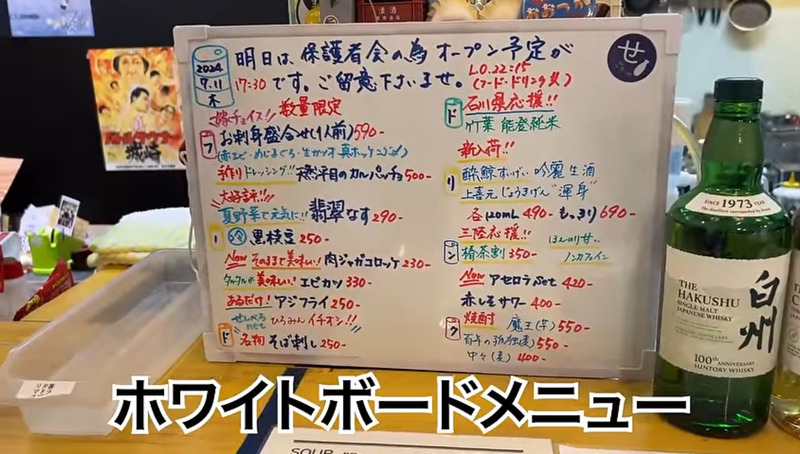 2024
7.11
木
明日は、保護者会の為オープン予定が
17:30です。ご留意下さいませ。
L.O.22:15
(フード・ドリンク共)
せ
フ
ー
ド
嫁チョイス!! 数量限定
お刺身盛合せ(1人前)590-
手作りドレッシング!! 天然平目のカルパッチョ500-
大好評!!
夏野菜で元気に!! 翡翠なす290-
冷 黒枝豆250-
Now そのままで美味しい! 肉ジャガコロッケ230-
タルタルが美味しい! エビカツ330-
あるだけ! アジフライ250-
ひろみんイチオシ!!
名物 そば刺し250-
ド
リ
ン
ク
石川県応援!!
竹葉 能登純米
新入荷!!
酔鯨 すいげい 吟麗生酒
上喜元 じょうきげん "渾身"
各120mL 490- もっきり690-
三陸応援!!
椿茶割350-
ほんのり甘い
ノンカフェイン
Now アセロラset 420-
赤しそサワー 400-
焼酎 魔王(芋)550-
百年の孤独(麦)550-
中々(麦)400-
SINCE 1973
THE
HAKUSHU
SINGLE MALT
JAPANESE WHISKY
白州
100th ANNIVERSARY
SUNTORY WHISKY
ホワイトボードメニュー